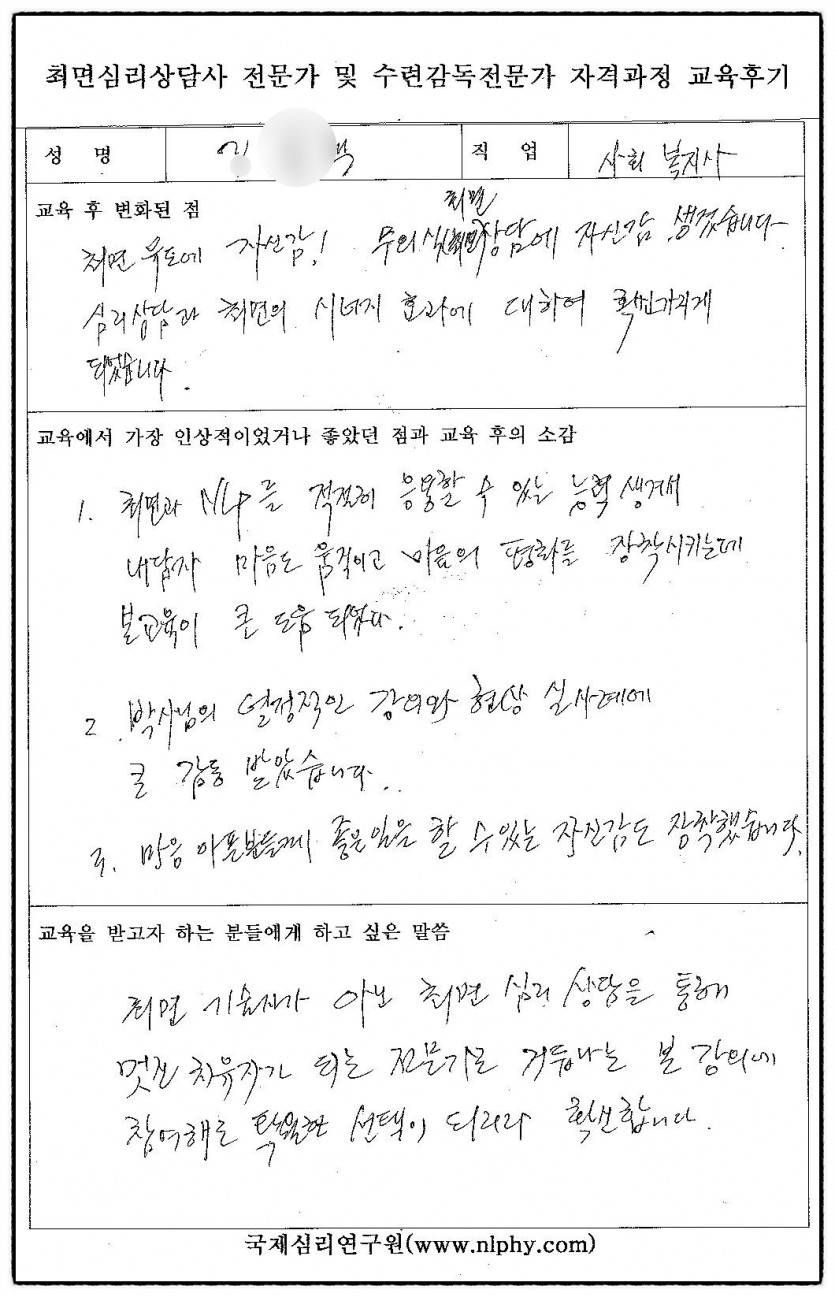 최면심리상담사 전문가 및 수련감독전문가 자격과정 교육후기
성 명 직 업 사회 복지사
교육 후 변화된 점
최면
최면 유도에 자신감! 무의식(최면)상담에 자신감 생겼습니다
심리상담과 최면의 시너지 효과에 대하여 확신가지게
되었습니다.
교육에서 가장 인상적이었거나 좋았던 점과 교육 후의 소감
1. 최면과 NLP를 적절히 응용할 수 있는 능력 생겨서
내담자 마음도 움직이고 마음의 평화를 장착시키는데
본교육이 큰 도움 되었다.
2. 박사님의 열정적인 강의와 현상 실사례에
큰 감동 받았습니다..
3. 마음 아픈분들께 좋은일을 할 수 있는 자신감도 장착했습니다.
교육을 받고자 하는 분들에게 하고 싶은 말씀
최면 기술자가 아닌 최면 심리 상담을 통해
멋진 치유자가 되는 전문가로 거듭나는 본 강의에
참여해도 탁월한 선택이 되리라 확신합니다.
국제심리연구원(www.nlphy.com)